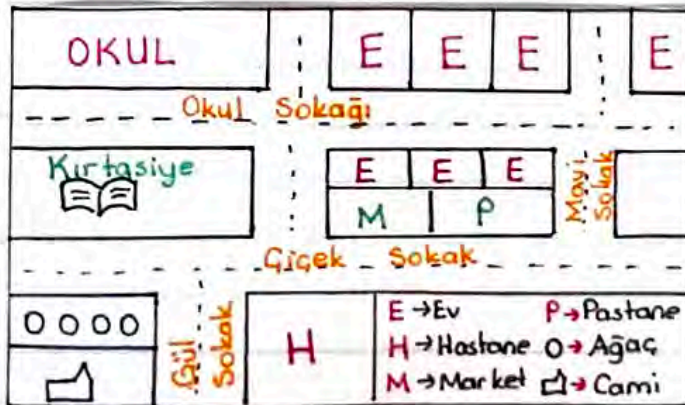 OKUL E E E E
Okul Sokağı
Kırtasiye
E E E
M P
Mavi Sokak
Çiçek Sokak
O O O O
Gül Sokak
H
E → Ev P → Pastane
H → Hastane O → Ağaç
M → Market → Cami